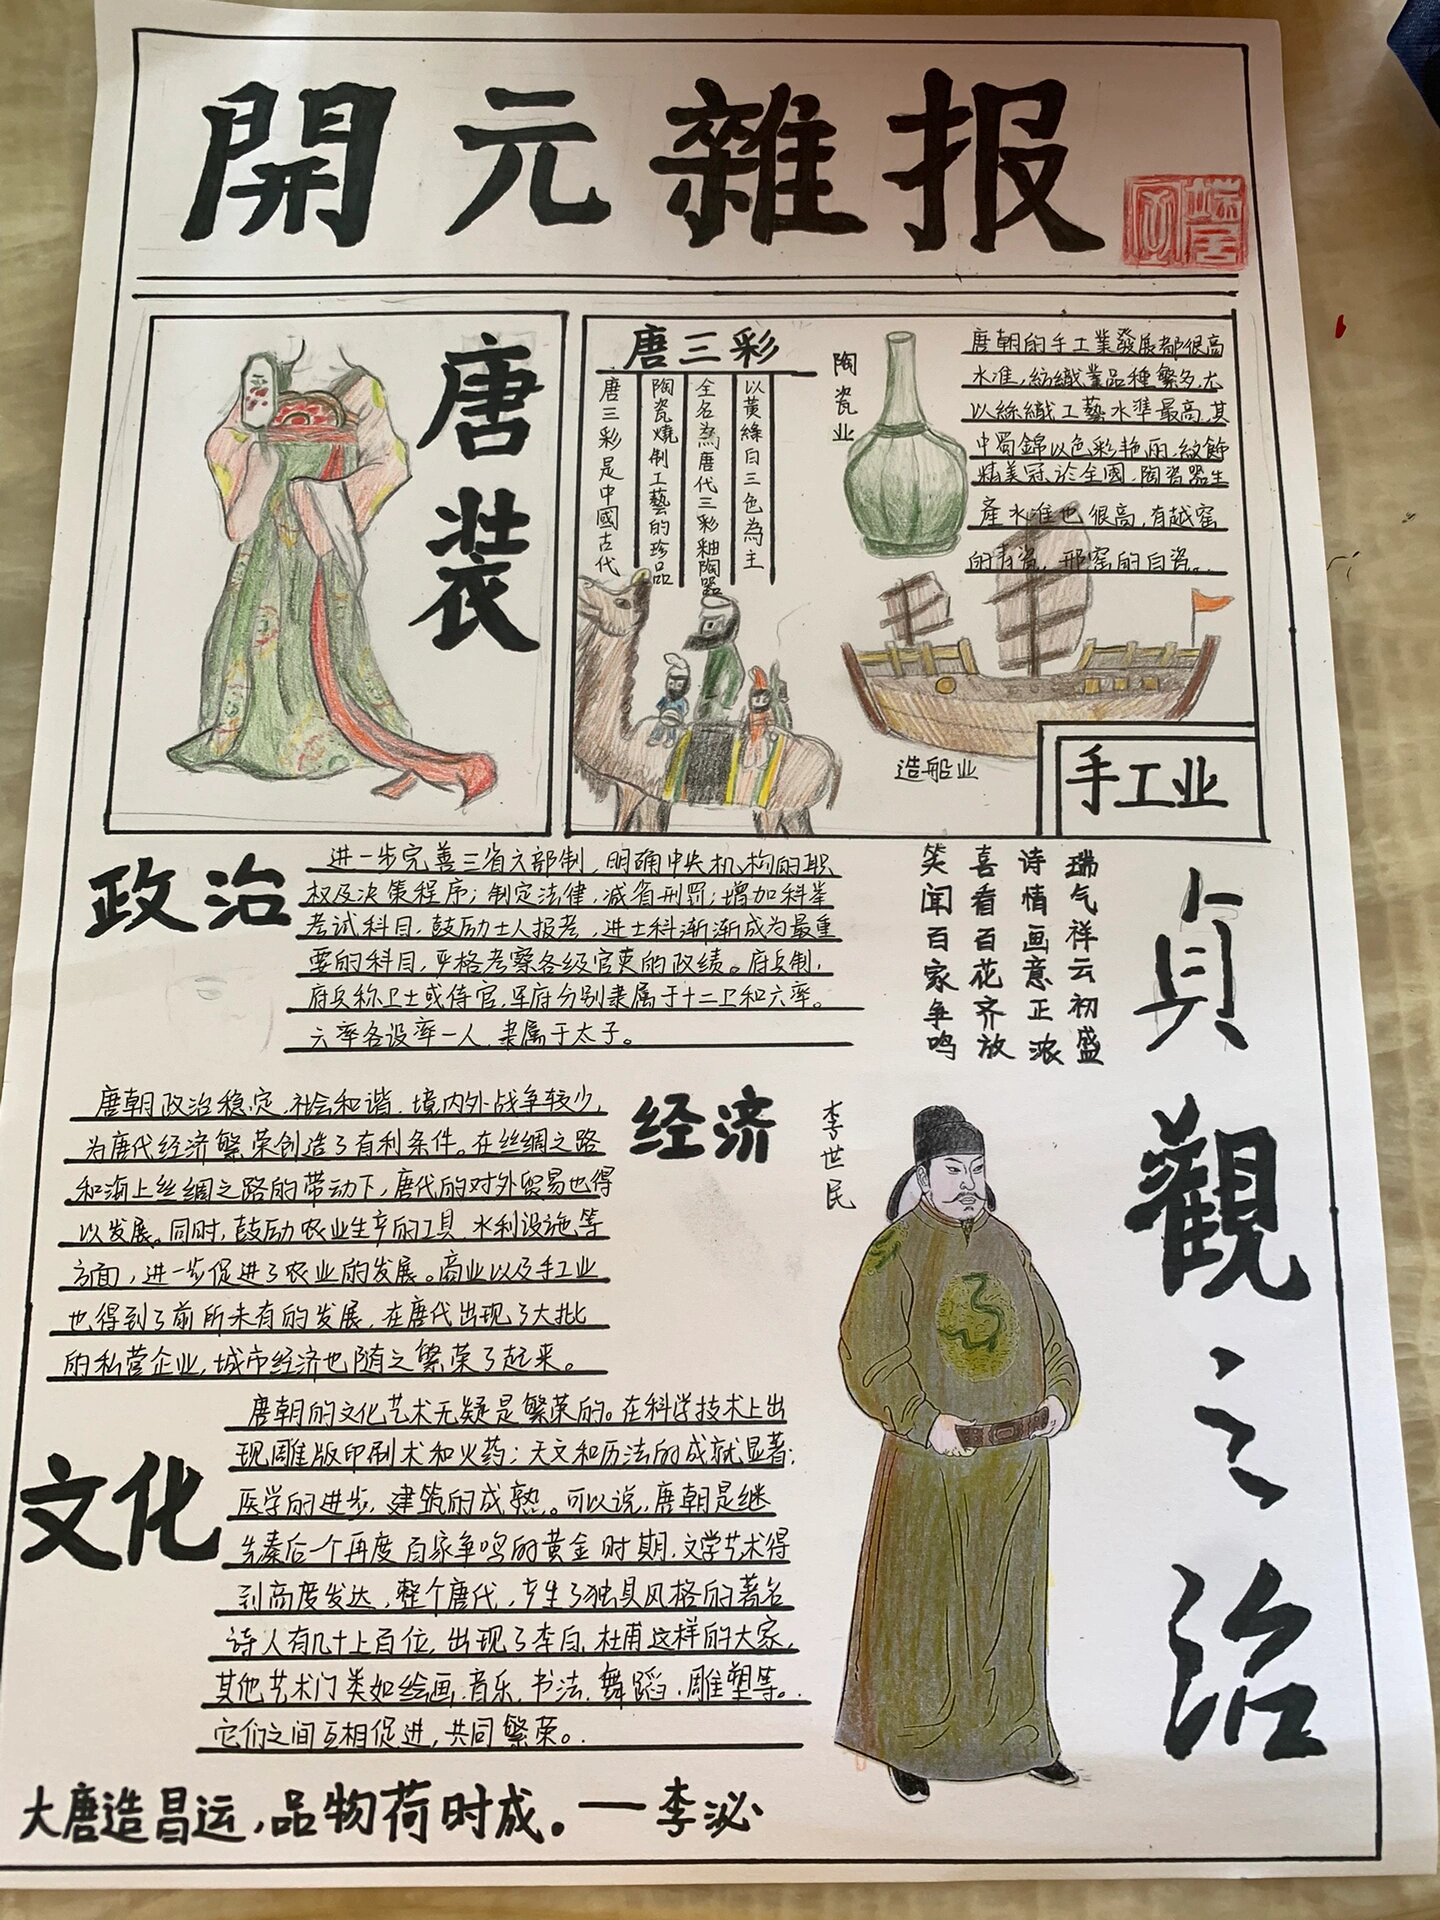 開元雜报
端居
唐装
唐三彩
唐三彩是中國古代
陶瓷燒制工藝的珍品
全名為唐代三彩釉陶器
以黃綠白三色為主
陶瓷业
唐朝的手工業發展都很高
水准,紡織業品種繁多,尤
以絲織工藝水準最高,其
中蜀錦以色彩艳丽,紋飾
精美冠於全國,陶瓷器生
產水准也很高,有越窑
的青瓷,邢窑的白瓷。
造船业
手工业
政治
进一步完善三省六部制,明确中央机构的职
权及决策程序;制定法律,减省刑罚;增加科举
考试科目,鼓励士人报考,进士科渐渐成为最重
要的科目,严格考察各级官吏的政绩。府兵制,
府兵称卫士或侍官,军府分别隶属于十二卫和六率。
六率各设率一人,隶属于太子。
瑞气祥云初盛
诗情画意正浓
喜看百花齐放
笑闻百家争鸣
貞觀之治
经济
唐朝政治稳定、社会和谐、境内外战争较少,
为唐代经济繁荣创造了有利条件。在丝绸之路
和海上丝绸之路的带动下,唐代的对外贸易也得
以发展。同时,鼓励农业生产的工具、水利设施等
方面,进一步促进了农业的发展。商业以及手工业
也得到了前所未有的发展,在唐代出现了大批
的私营企业,城市经济也随之繁荣了起来。
李世民
文化
唐朝的文化艺术无疑是繁荣的。在科学技术上出
现雕版印刷术和火药;天文和历法的成就显著;
医学的进步,建筑的成熟。可以说,唐朝是继
先秦后一个再度百家争鸣的黄金时期,文学艺术得
到高度发达,整个唐代,产生了独具风格的著名
诗人有几十上百位,出现了李白、杜甫这样的大家,
其他艺术门类如绘画、音乐、书法、舞蹈、雕塑等。
它们之间互相促进,共同繁荣。
大唐造昌运,品物荷时成。——李泌